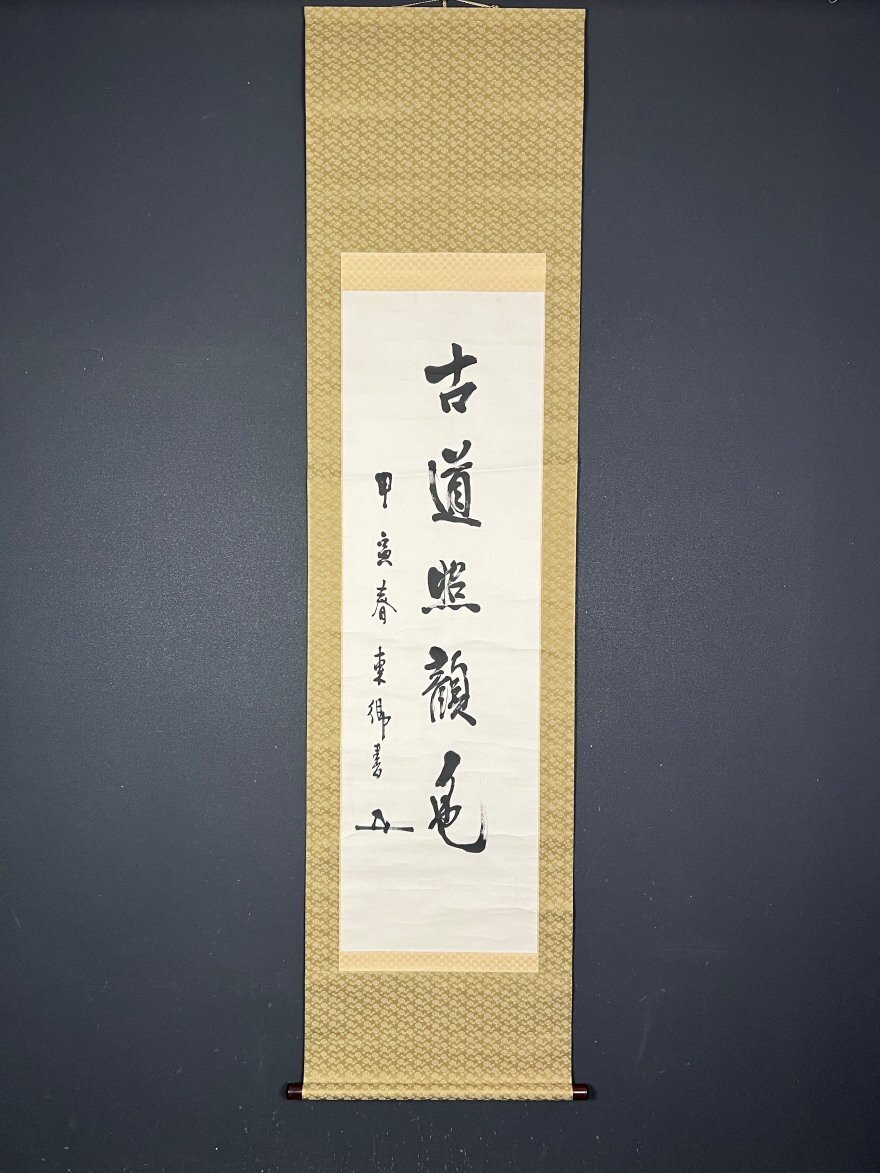 古道照顔色
甲寅春東郷書